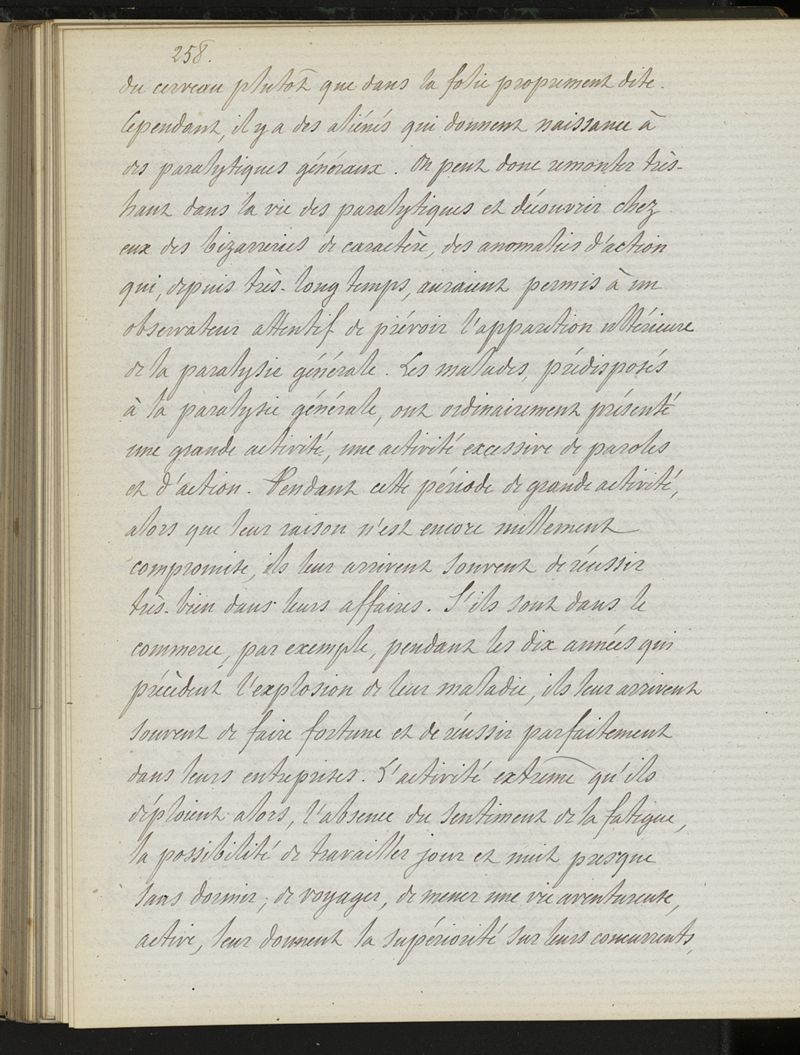 258.
du cerveau plutôt que dans la folie proprement dite.
Cependant, il y a des aliénés qui donnent naissance à
des paralytiques généraux. On peut donc remonter très-
haut dans la vie des paralytiques et découvrir chez
eux des bizarreries de caractère, des anomalies d'action
qui, depuis très-longtemps, auraient permis à un
observateur attentif de prévoir l'apparition ultérieure
de la paralysie générale. Les malades, prédisposés
à la paralysie générale, ont ordinairement présenté
une grande activité, une activité excessive de paroles
et d'action. Pendant cette période de grande activité,
alors que leur raison n'est encore nullement
compromise, ils leur arrivent souvent de réussir
très-bien dans leurs affaires. S'ils sont dans le
commerce, par exemple, pendant les dix années qui
précèdent l'explosion de leur maladie, ils leur arrivent
souvent de faire fortune et de réussir parfaitement
dans leurs entreprises. L'activité extrême qu'ils
déploient alors, l'absence du sentiment de la fatigue,
la possibilité de travailler jour et nuit presque
sans dormir, de voyager, de mener une vie aventureuse,
active, leur donnent la supériorité sur leurs concurrents,